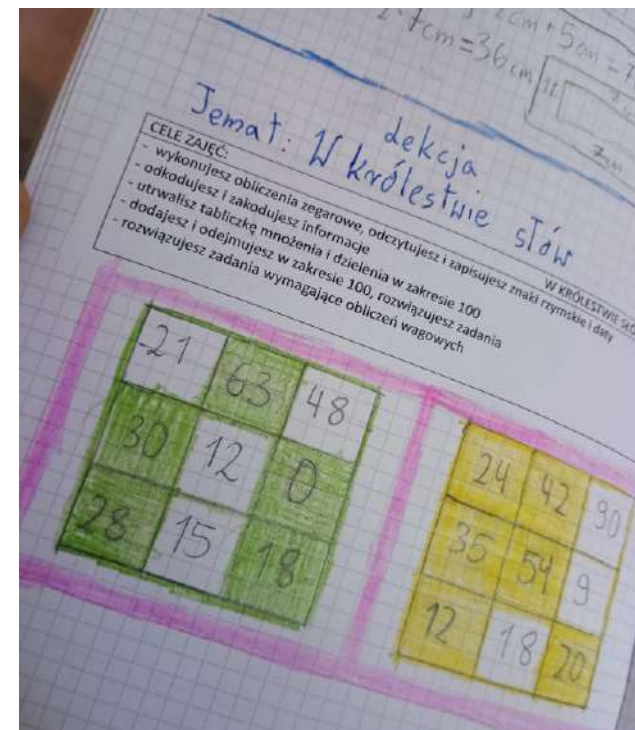 2cm + 5cm = 7
7cm = 36cm
2c
7cm
Lekcja
Temat: W królestwie słów
W KRÓLESTWIE SŁÓ
CELE ZAJĘĆ:
- wykonujesz obliczenia zegarowe, odczytujesz i zapisujesz znaki rzymskie i daty
- odkodujesz i zakodujesz informacje
- utrwalisz tabliczkę mnożenia i dzielenia w zakresie 100
- dodajesz i odejmujesz w zakresie 100, rozwiązujesz zadania
- rozwiązujesz zadania wymagające obliczeń wagowych
21 63 48
30 12 0
28 15 18
24 42 90
35 54 9
12 18 20